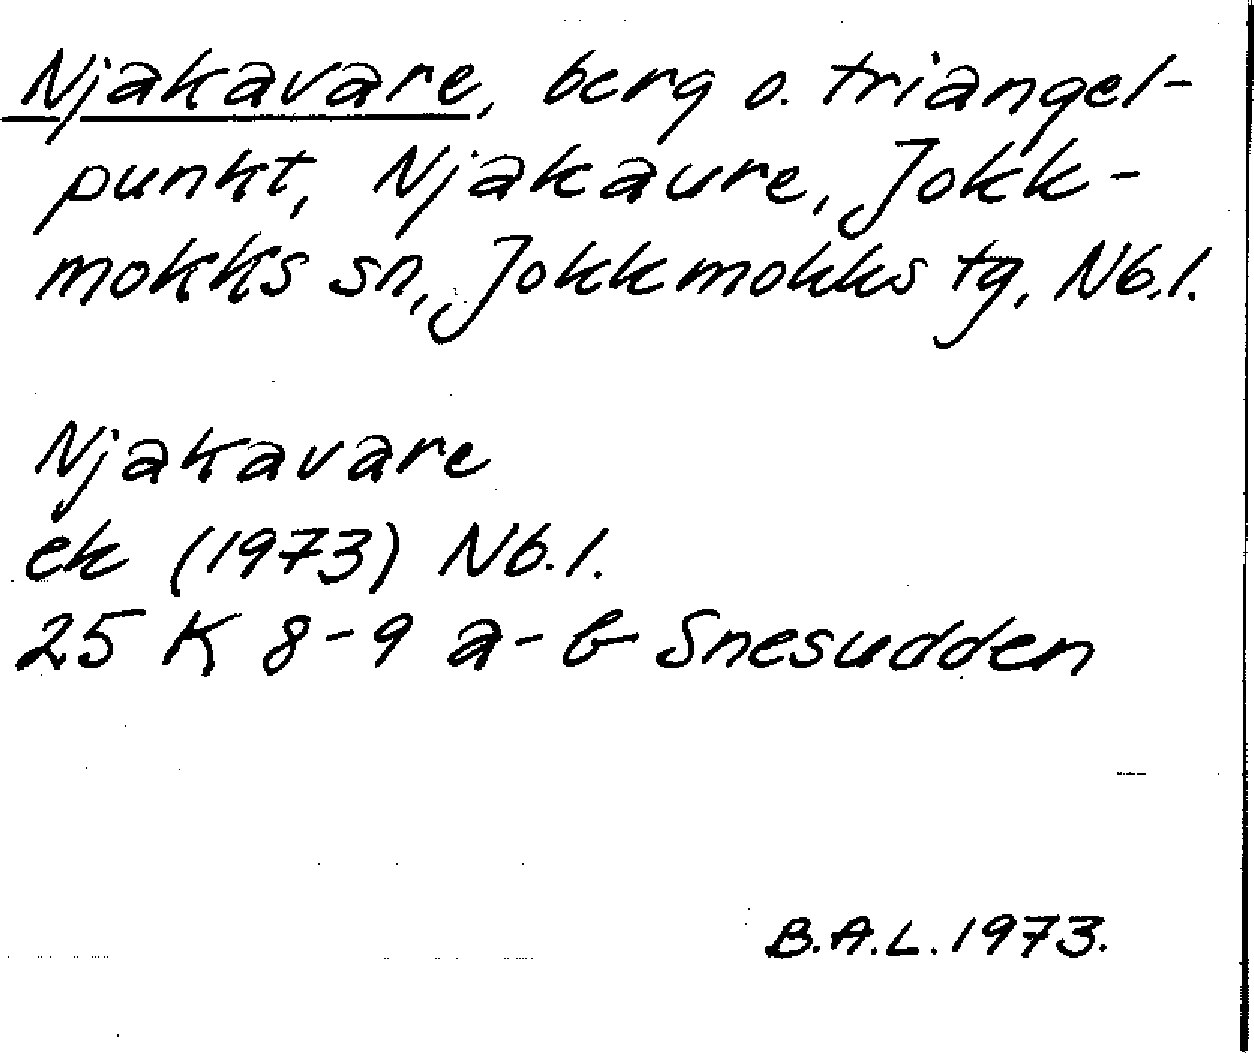 Njakavare, berg o. triangel-
punkt, Njakaure, Jokk-
mokks sn, Jokkmokks tg, Nb.l.
Njakavare
ek (1973) Nb.l.
25 K 8-9 a-b Snesudden
B.A.L. 1973.